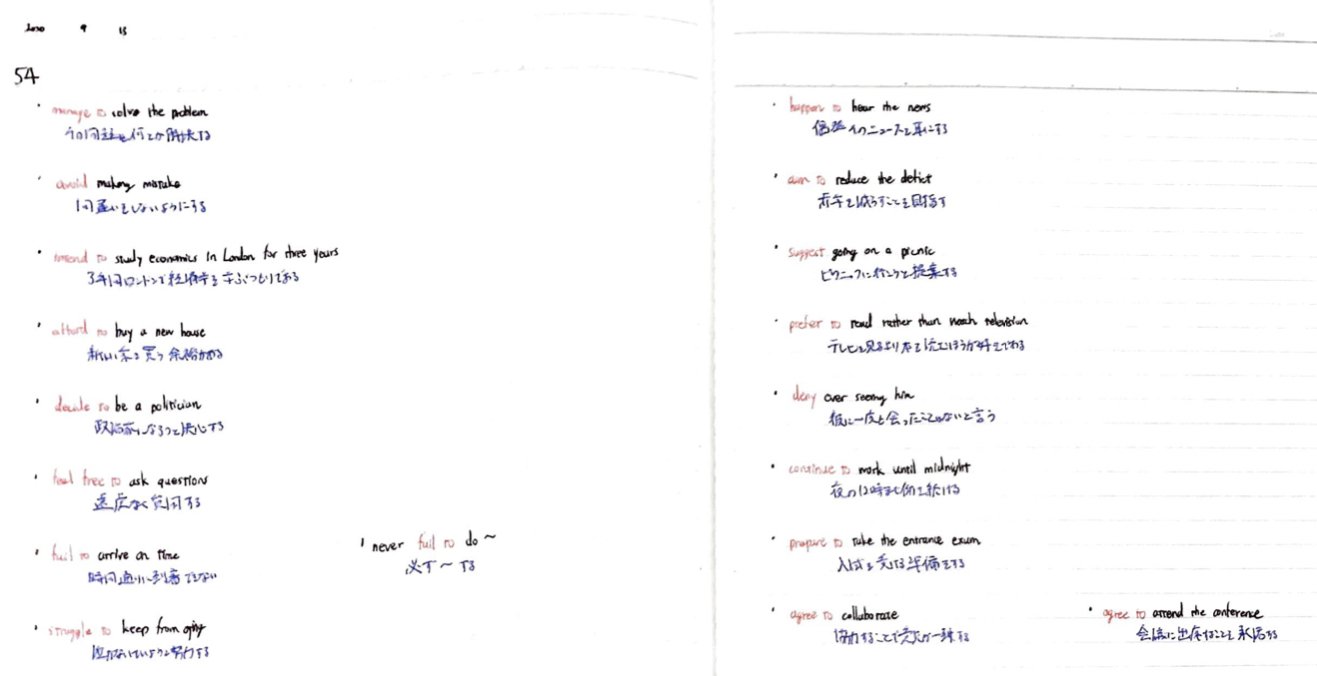 2020 9 13
54
・manage to solve the problem
その問題を何とか解決する
・avoid making mistake
間違いをしないようにする
・intend to study economics in London for three years
3年間ロンドンで経済学を学ぶつもりである
・afford to buy a new house
新しい家を買う余裕がある
・decide to be a politician
政治家になろうと決心する
・feel free to ask questions
遠慮なく質問する
・fail to arrive on time
時間通りに到着できない
・never fail to do ~
必ず〜する
・struggle to keep from crying
泣かないでいようと努力する
・happen to hear the news
偶然そのニュースを耳にする
・aim to reduce the deficit
赤字を減らすことを目指す
・suggest going on a picnic
ピクニックに行こうと提案する
・prefer to read rather than watch television
テレビを見るより本を読むほうが好きである
・deny ever seeing him
彼に一度も会ったことがないと言う
・continue to work until midnight
夜の12時まで働き続ける
・prepare to take the entrance exam
入試を受ける準備をする
・agree to collaborate
協力することで意見が一致する
・agree to attend the conference
会議に出席することを承諾する